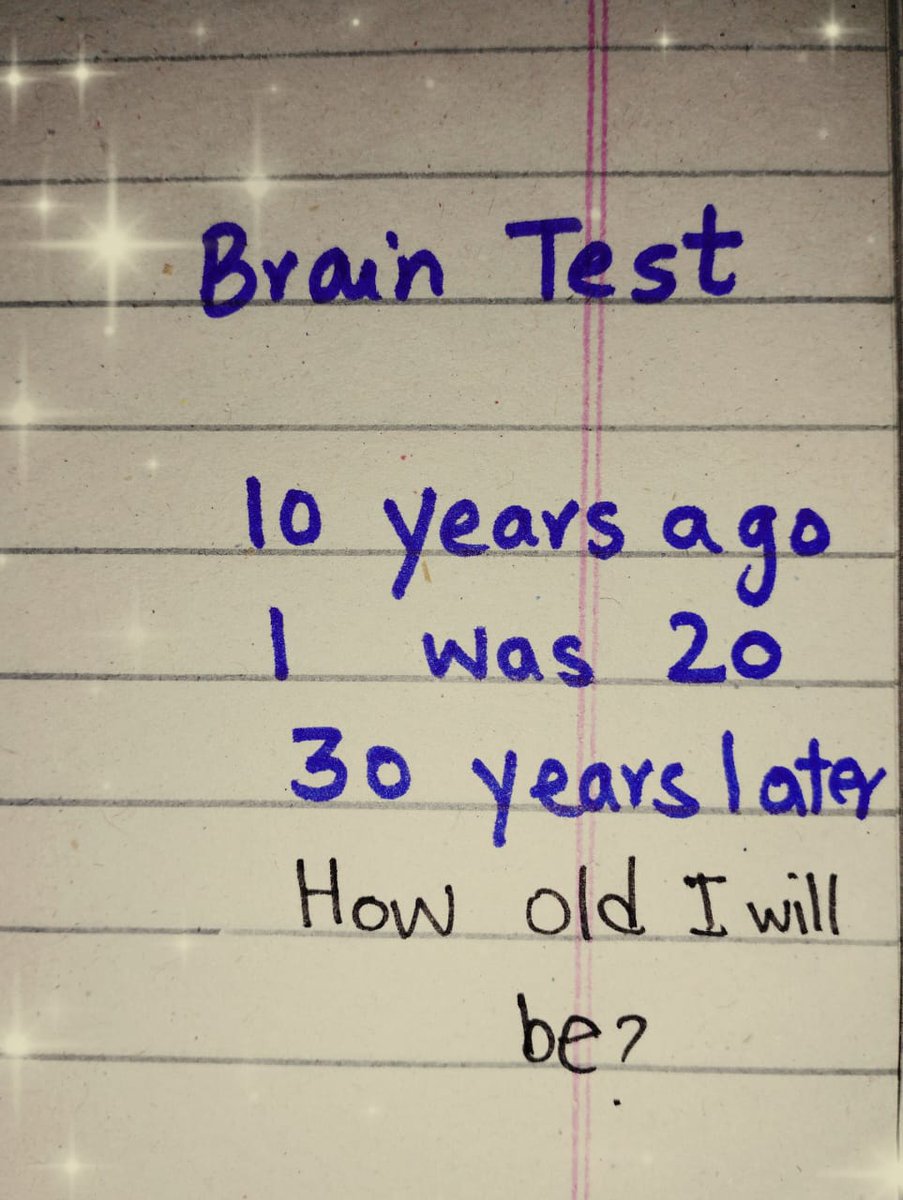 Brain Test
10 years ago
I was 20
30 years later
How old I will
be?